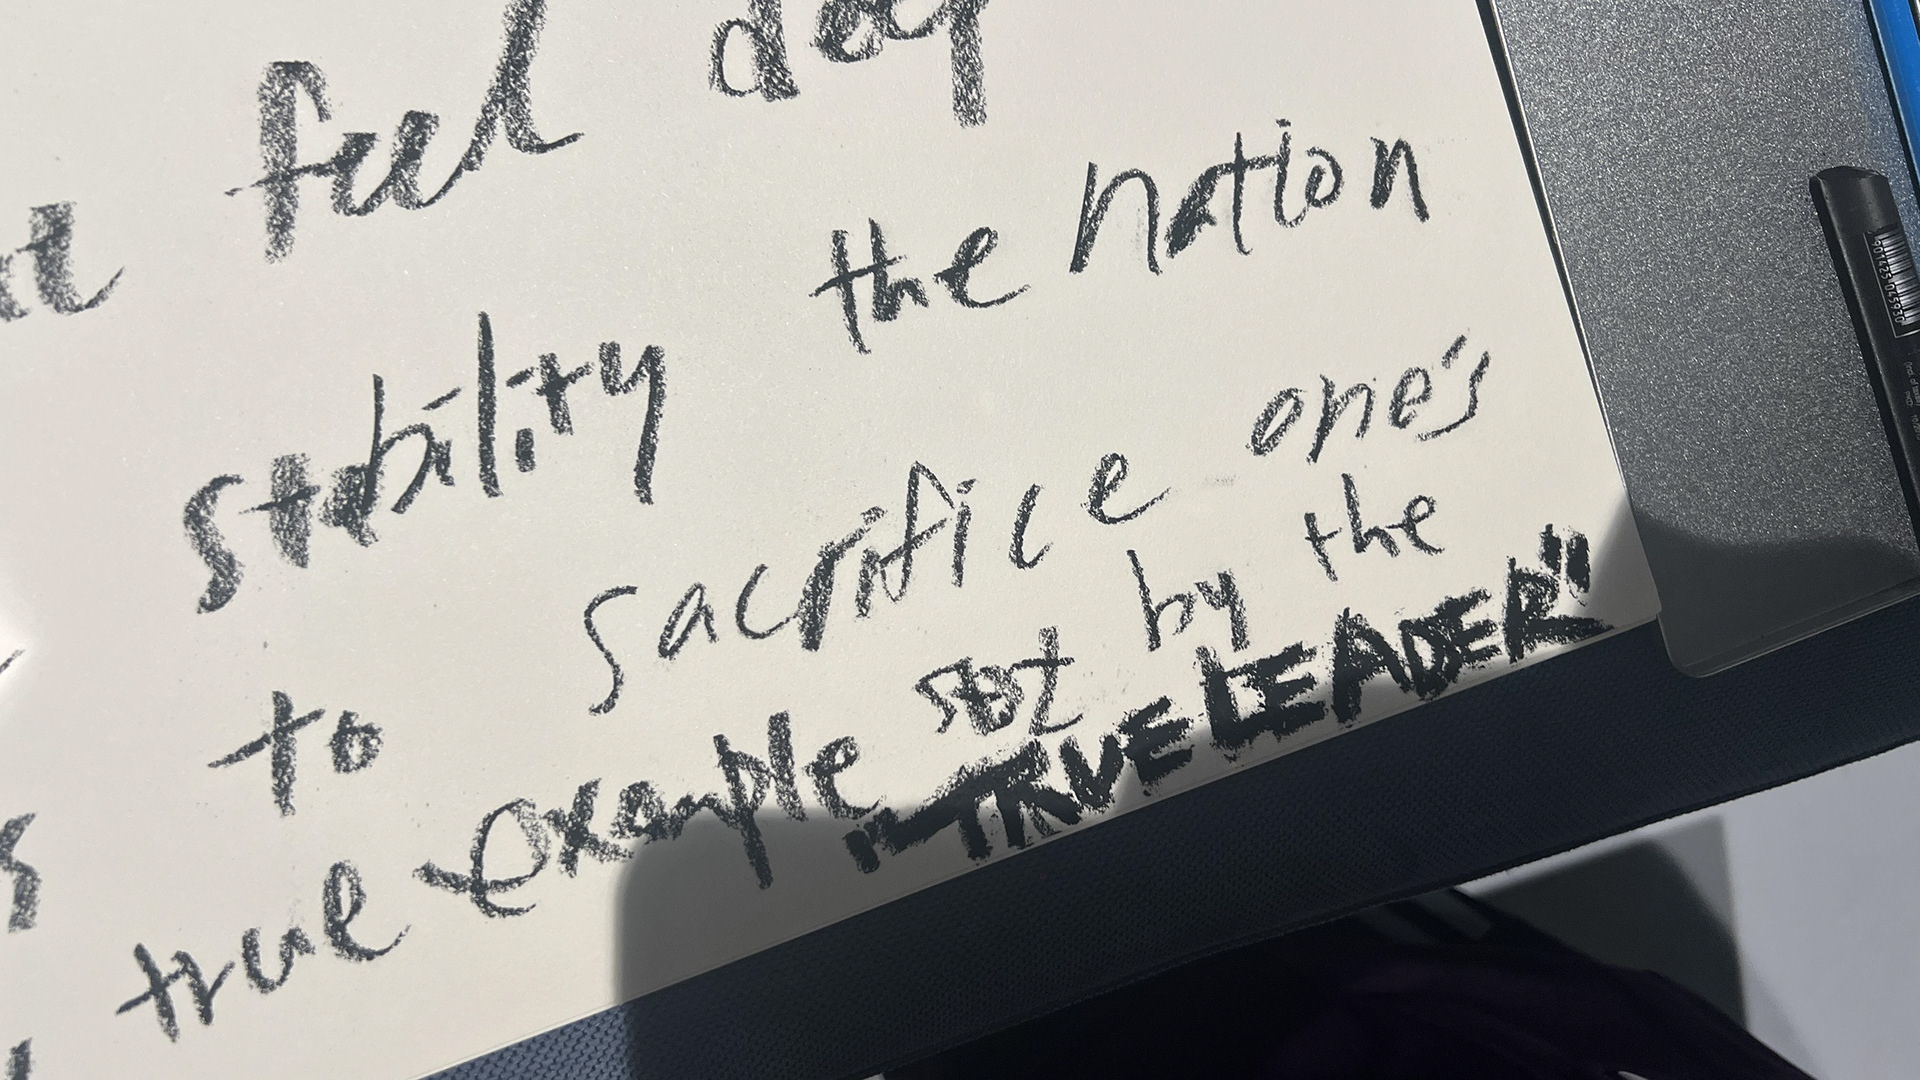 feel deep
stability the nation
to sacrifice one's
true example set by the
"TRUE LEADER"
9014251045930